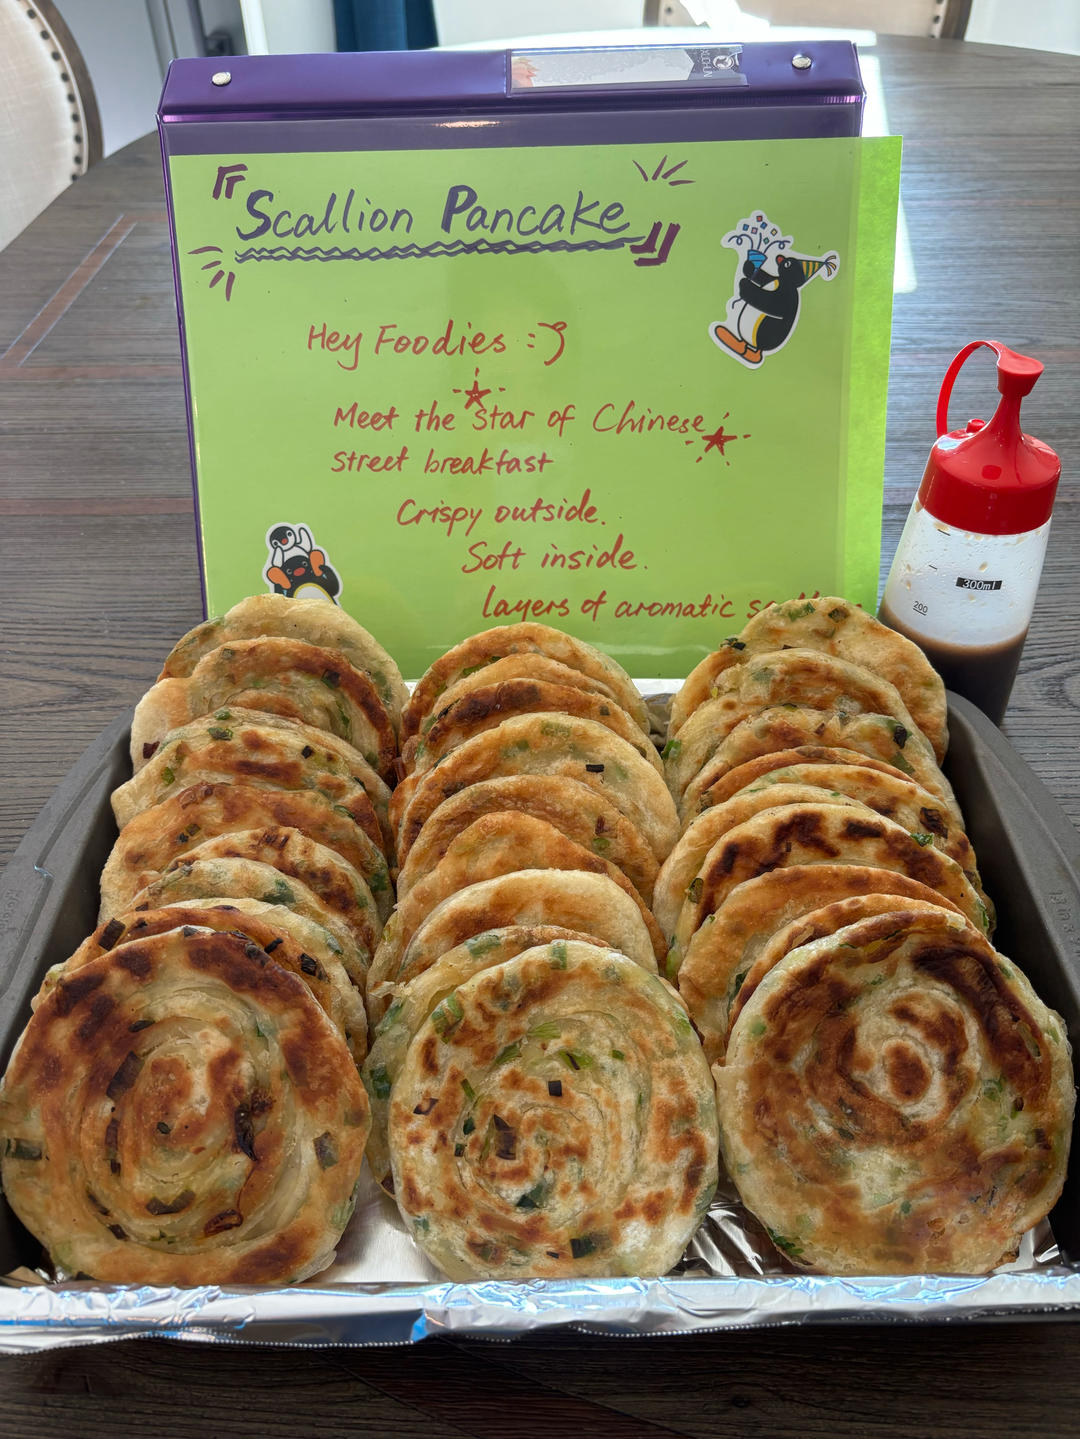 『Scallion Pancake』
Hey Foodies :)
Meet the star of Chinese
street breakfast
Crispy outside.
Soft inside.
layers of aromatic
300ml
200